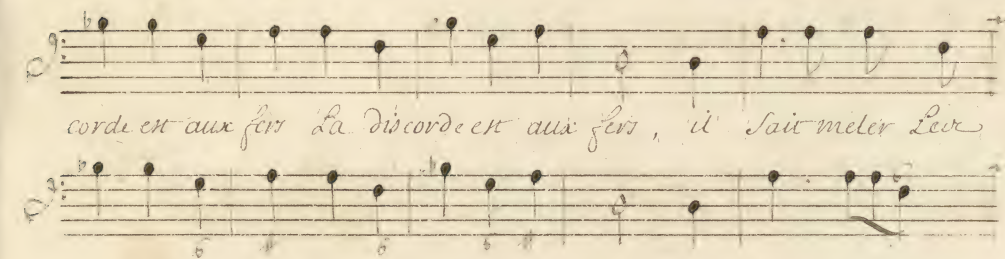 corde est aux fers La discorde est aux fers, il Sait meler